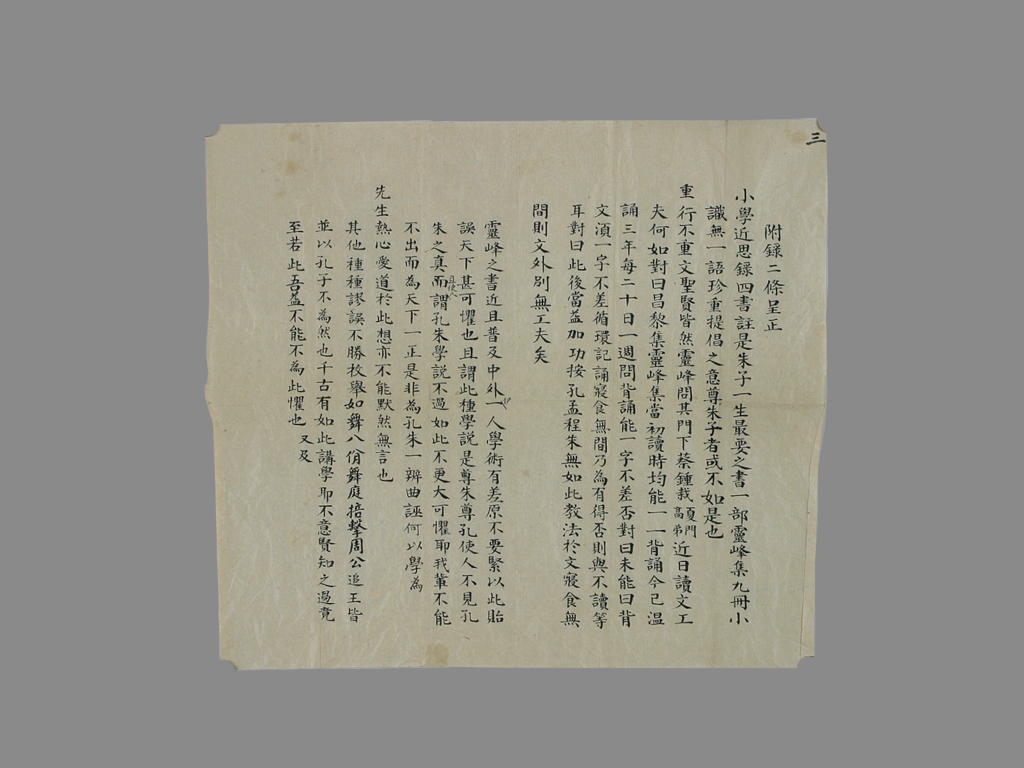 三
附錄二條呈正
小學近思錄四書註是朱子一生最要之書一部靈峰集九冊小
識無一語珍重提倡之意尊朱子者或不如是也
重行不重文聖賢皆然靈峰問其門下蔡鍾莪夏門高弟近日讀文工
夫何如對曰昌黎集靈峰集當初讀時均能一一背誦今已溫
誦三年每二十日一週問背誦能一字不差否對曰未能曰背
文須一字不差循環記誦寢食無間乃為有得否則與不讀等
耳對曰此後當益加功按孔孟程朱無如此教法於文寢食無
間則文外別無工夫矣
靈峰之書近且普及中外一人學術有差原不要緊以此貽
誤天下甚可懼也且謂此種學說是尊朱尊孔使人不見孔
朱之真而謂孔朱學說不過如此不更大可懼耶我輩不能
且使人
不出而為天下一正是非為孔朱一辨曲誣何以學為
先生熱心愛道於此想亦不能默然無言也
其他種種謬誤不勝枚舉如舞八佾舞庭掊擊周公追王皆
並以孔子不為然也千古有如此講學耶不意賢知之過竟
至若此吾益不能不為此懼也 又及